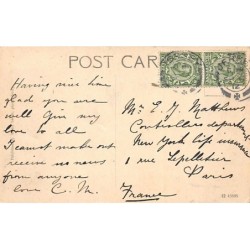 POST CARD
Having nice time
glad you are
well Give my
love to all
I cannot make out
receive no news
from anyone
love C. M.
Mr E. J. Matthews
Controllers department
New York life insurance
1 rue Lepelletier
Paris
France